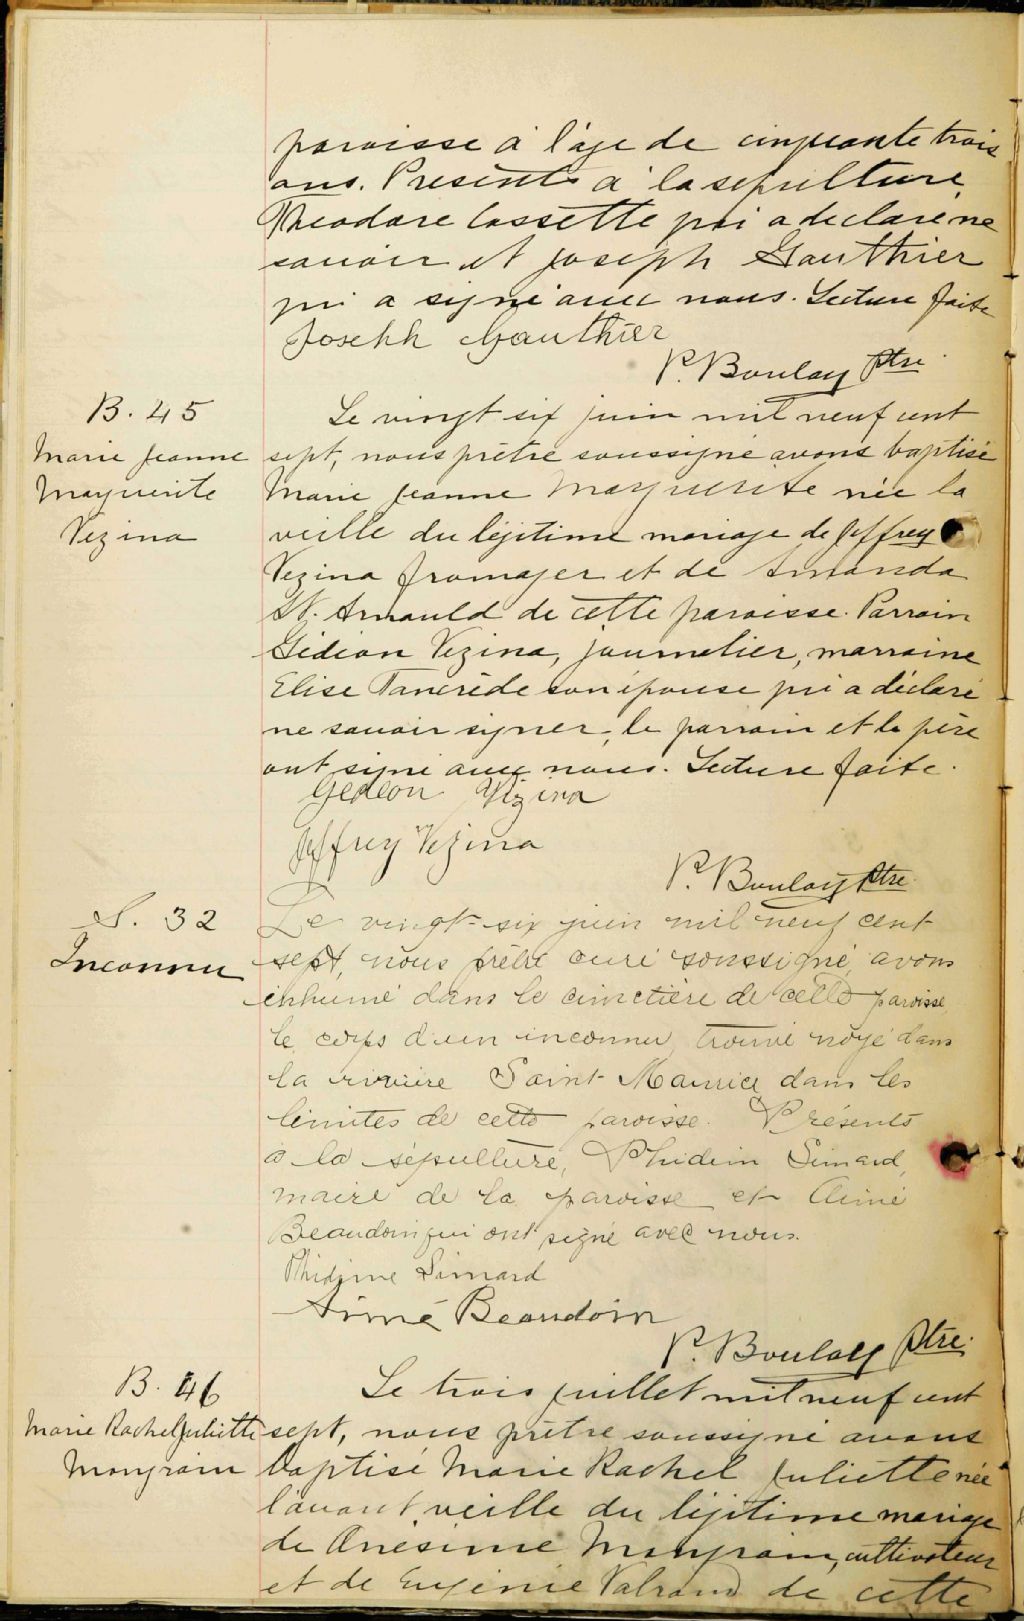 paroisse à l'âge de cinquante trois
ans. Presents à la sepulture,
Theodore Cossette qui a declaré ne
savoir et Joseph Gauthier
qui a signé avec nous. Lecture faite
Joseph Gauthier
P. Boulay Ptre.
B. 45
Marie Jeanne
Marguerite
Vezina
Le vingt six juin mil neuf cent
sept, nous prêtre soussigné avons baptisé
Marie Jeanne Marguerite née la
veille du légitime mariage de Jeffrey
Vezina fromager et de Amanda
St. Arnauld de cette paroisse. Parrain
Gédéon Vezina, journalier, marraine
Elise Tancrède son épouse qui a déclaré
ne savoir signer, le parrain et le père
ont signé avec nous. Lecture faite.
Gédéon Vézina
Jeffrey Vezina
P. Boulay Ptre.
S. 32
Inconnu
Le vingt-six juin mil neuf cent
sept, nous prêtre curé soussigné, avons
inhumé dans le cimetière de cette paroisse,
le corps d'un inconnu, trouvé noyé dans
la rivière Saint-Maurice, dans les
limites de cette paroisse. Présents
à la sépulture, Phidim Simard,
maire de la paroisse et Aimé
Beaudoin qui ont signé avec nous.
Phidime Simard
Aimé Beaudoin
P. Boulay Ptre.
B. 46
Marie Rachel Juliette
Mongrain
Le trois juillet mil neuf cent
sept, nous prêtre soussigné avons
baptisé Marie Rachel Juliette née
l'avant veille du légitime mariage
de Onésime Mongrain, cultivateur
et de Eugénie Valrand de cette